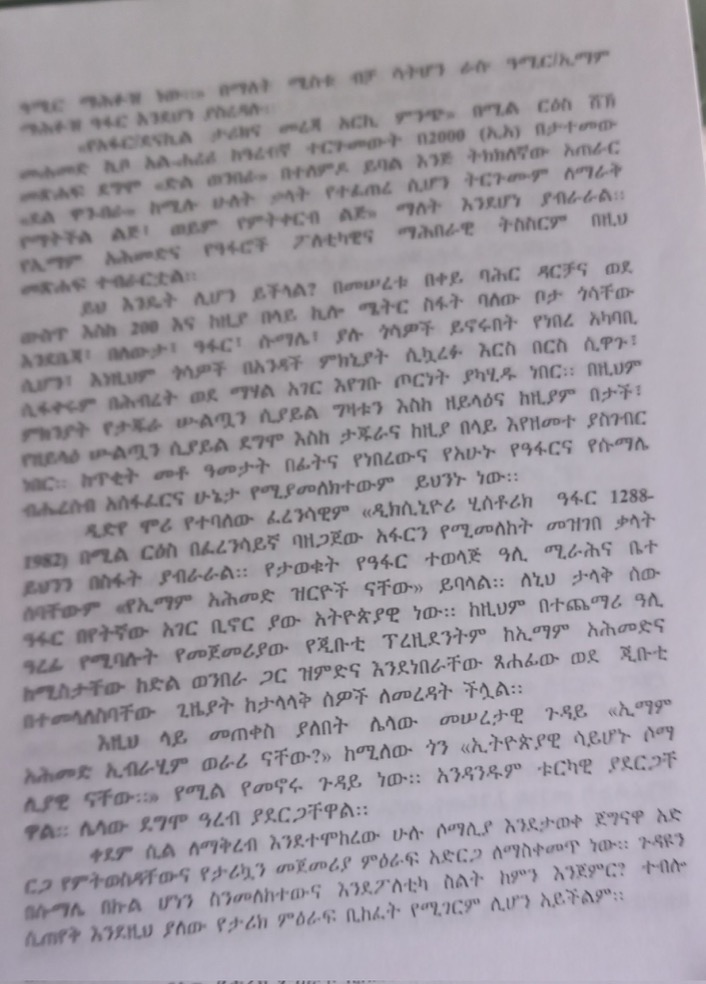 ዓሚር ማሕቶዝ ነው።» በማለት ሚስቱ ብቻ ሳትሆን ራሱ ዓሚር/ኢማም
ማሕቶዝ ዓፋር እንደሆነ ያስረዳሉ።
«የአፋር/ደናኪል ታሪክና መረጃ አርኪ ምንጭ» በሚል ርዕስ ሸኽ
መሐመድ ኪቦ አል-ሐረሪ ከዓረብኛ ተርጉመውት በ2000 (ኢአ) በታተመው
መጽሐፍ ደግሞ «ድል ወንበራ» በተለምዶ ይባል እንጅ ትክክለኛው አጠራር
«ደል ዋንብራ» ከሚሉ ሁለት ቃላት የተፈጠረ ሲሆን ትርጉሙም ለማራት
የማትችል ልጅ፣ ወይም የምትቀርብ ልጅ» ማለት እንደሆነ ያብራራል።
የኢማም አሕመድና የዓፋሮች ፖለቲካዊና ማሕበራዊ ትስስርም በዚህ
መጽሐፍ ተብራርቷል።
ይህ እንዴት ሊሆን ይችላል? በመሠረቱ በቀይ ባሕር ዳርቻና ወደ
ውስጥ እስከ 200 እና ከዚያ በላይ ኪሎ ሜትር ስፋት ባለው ቦታ ጎሳቸው
እንደቤጃ፣ በለውታ፣ ዓፋር፣ ሱማሌ፣ ያሉ ጎሳዎች ይኖሩበት የነበረ አካባቢ
ሲሆን፣ እነዚህም ጎሳዎች በአንዳች ምክኒያት ሲኳረፉ እርስ በርስ ሲዋጉ፣
ሲፋቀሩም በሕብረት ወደ ማሃል አገር እየገቡ ጦርነት ያካሂዱ ነበር። በዚህም
ምክንያት የታጁራ ሡልጧን ሲያይል ግዛቱን እስከ ዘይላዕና ከዚያም በታች፣
የዘይላዕ ሡልጧን ሲያይል ደግሞ እስከ ታጁራና ከዚያ በላይ እየዘመተ ያስገብር
ነበር። ከጥቂት መቶ ዓመታት በፊትና የነበረውና የአሁኑ የዓፋርና የሱማሌ
ብሔረሰብ አሰፋፈርና ሁኔታ የሚያመለክተውም ይህንኑ ነው።
ዲድየ ሞሪ የተባለው ፈረንሳዊም «ዲክሲኒዮሪ ሂስቶሪክ ዓፋር 1288-
1982) በሚል ርዕስ በፈረንሳይኛ ባዘጋጀው አፋርን የሚመለከት መዝገበ ቃላት
ይህንን በስፋት ያብራራል። የታወቁት የዓፋር ተወላጅ ዓሊ ሚራሕና ቤተ
ሰባቸውም «የኢማም አሕመድ ዝርዮች ናቸው» ይባላል። ለኒህ ታላቅ ሰው
ዓፋር በየትኛው አገር ቢኖር ያው ኢትዮጵያዊ ነው። ከዚህም በተጨማሪ ዓሊ
ዓረፊ የሚባሉት የመጀመሪያው የጂቡቲ ፕረዚደንትም ከኢማም አሕመድና
ከሚስታቸው ከድል ወንበራ ጋር ዝምድና እንደነበራቸው ጸሐፊው ወደ ጂቡቲ
በተመላለስባቸው ጊዜያት ከታላላቅ ሰዎች ለመረዳት ችሏል።
እዚህ ላይ መጠቀስ ያለበት ሌላው መሠረታዊ ጉዳይ «ኢማም
አሕመድ ኢብራሂም ወራሪ ናቸው?» ከሚለው ጎን «ኢትዮጵያዊ ሳይሆኑ ሶማ
ሊያዊ ናቸው።» የሚል የመኖሩ ጉዳይ ነው። አንዳንዱም ቱርካዊ ያደርጋቸ
ዋል። ሌላው ደግሞ ዓረብ ያደርጋቸዋል።
ቀደም ሲል ለማቅረብ እንደተሞከረው ሁሉ ሶማሊያ እንደታወቀ ጀግናዋ አድ
ርጋ የምትወስዳቸውና የታሪኳን መጀመሪያ ምዕራፍ አድርጋ ለማስቀመጥ ነው። ጉዳዩን
በሱማሌ በኩል ሆነን ስንመለከተውና እንደፖለቲካ ስልት ከምን እንጀምር? ተብሎ
ሲጠየቅ እንደዚህ ያለው የታሪክ ምዕራፍ ቢከፈት የሚገርም ሊሆን አይችልም።